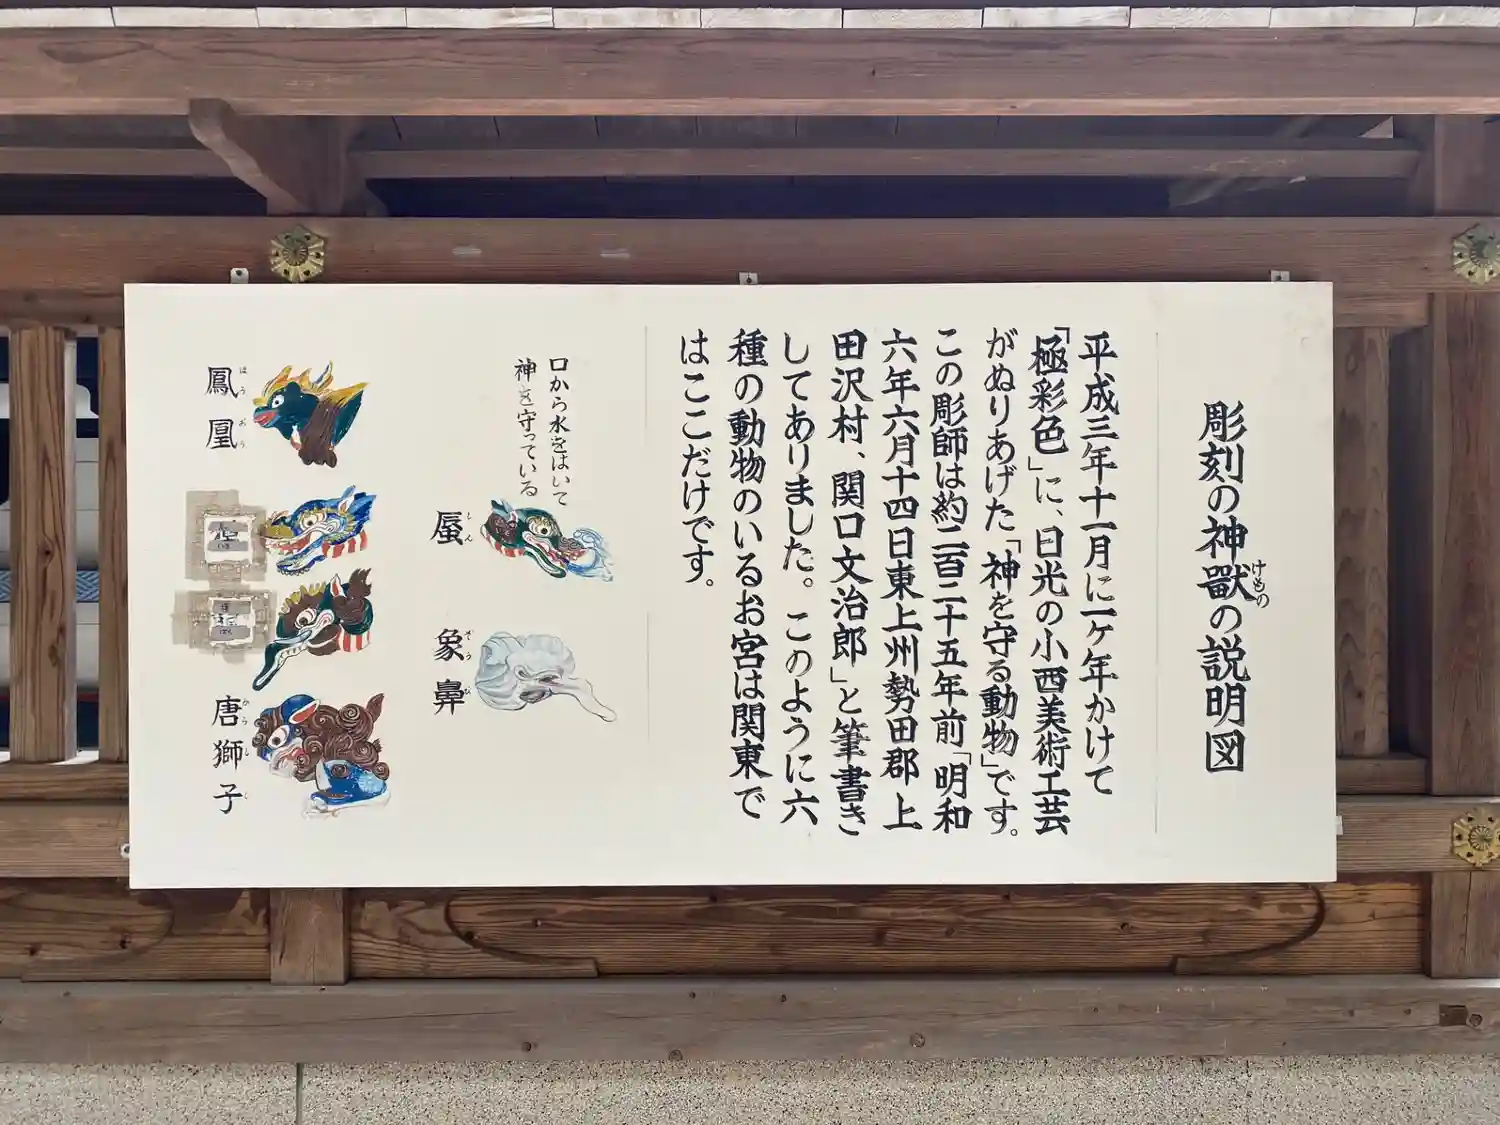 彫刻の神獣の説明図
けもの
平成三年十一月に一ヶ年かけて
「極彩色」に、日光の小西美術工芸
がぬりあげた「神を守る動物」です。
この彫師は約二百二十五年前「明和
六年六月十四日東上州勢田郡上
田沢村、関口文治郎」と筆書き
してありました。このように六
種の動物のいるお宮は関東で
はここだけです。
口から水をはいて
神を守っている
蜃
しん
象鼻
ぞうび
鳳凰
ほうおう
唐獅子
からしし